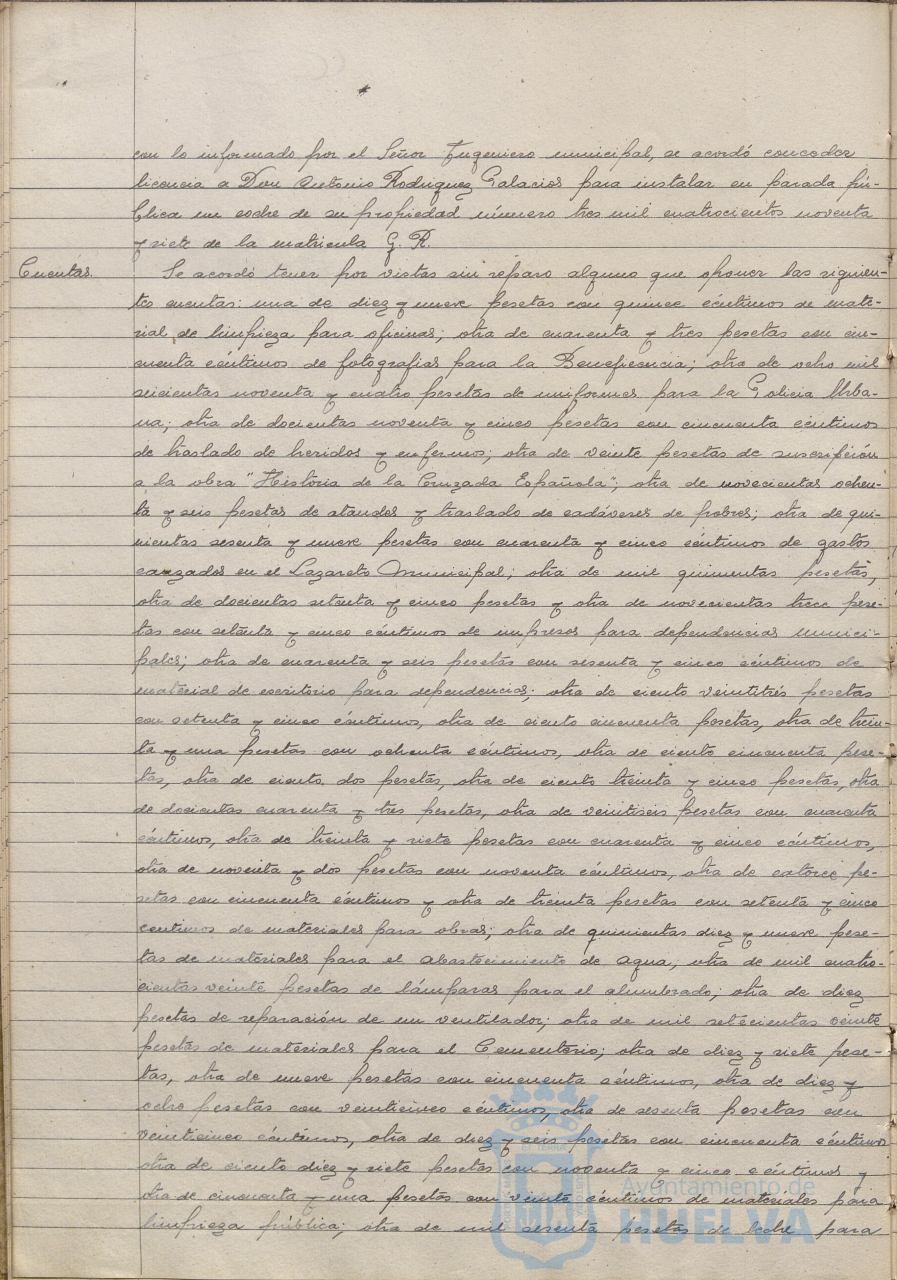 con lo informado por el Señor Ingeniero municipal, se acordó conceder
licencia a Don Antonio Rodriguez Palacios para instalar en parada pú-
blica un coche de su propiedad número tres mil cuatrocientos noventa
y siete de la matricula G. R.
Cuentas. Se acordó tener por vistas sin reparo alguno que oponer las siguien-
tes cuentas: una de diez y nueve pesetas con quince céntimos de mate-
rial de limpieza para oficinas; otra de cuarenta y tres pesetas con cin-
cuenta céntimos de fotografias para la Beneficencia; otra de ocho mil
seicientas noventa y cuatro pesetas de uniformes para la Policia Urba-
na; otra de docientas noventa y cinco pesetas con cincuenta céntimos
de traslado de heridos y enfermos; otra de veinte pesetas de suscripción
a la obra "Historia de la Cruzada Española"; otra de novecientas ochen-
ta y seis pesetas de ataudes y traslado de cadáveres de pobres; otra de qui-
nientas sesenta y nueve pesetas con cuarenta y cinco céntimos de gastos
causados en el Lazareto Municipal; otra de mil quinientas pesetas,
otra de docientas setenta y cinco pesetas y otra de novecientas trece pese-
tas con setenta y cinco céntimos de impresos para dependencias munici-
pales; otra de cuarenta y seis pesetas con sesenta y cinco céntimos de
material de escritorio para dependencias; otra de ciento veintitrés pesetas
con setenta y cinco céntimos, otra de ciento cincuenta pesetas, otra de trein-
ta y una pesetas con ochenta céntimos, otra de ciento cincuenta pese-
tas, otra de ciento dos pesetas, otra de ciento treinta y cinco pesetas, otra
de docientas cuarenta y tres pesetas, otra de veintiseis pesetas con cuarenta
céntimos, otra de treinta y siete pesetas con cuarenta y cinco céntimos,
otra de noventa y dos pesetas con noventa céntimos, otra de catorce pe-
setas con cincuenta céntimos y otra de treinta pesetas con setenta y cinco
centimos de materiales para obras; otra de quinientas diez y nueve pese-
tas de materiales para el abastecimiento de agua; otra de mil cuatro-
cientas veinte pesetas de lámparas para el alumbrado; otra de diez
pesetas de reparación de un ventilador; otra de mil setecientas veinte
pesetas de materiales para el Cementerio; otra de diez y siete pese-
tas, otra de nueve pesetas con cincuenta céntimos, otra de diez y
ocho pesetas con veinticinco céntimos, otra de sesenta pesetas con
veinticinco céntimos, otra de diez y seis pesetas con cincuenta céntimos
otra de ciento diez y siete pesetas con noventa y cinco céntimos y
otra de cincuenta y una pesetas con veinte céntimos de materiales para
limpieza pública; otra de mil sesenta pesetas de leche para
Ayuntamiento de
HUELVA